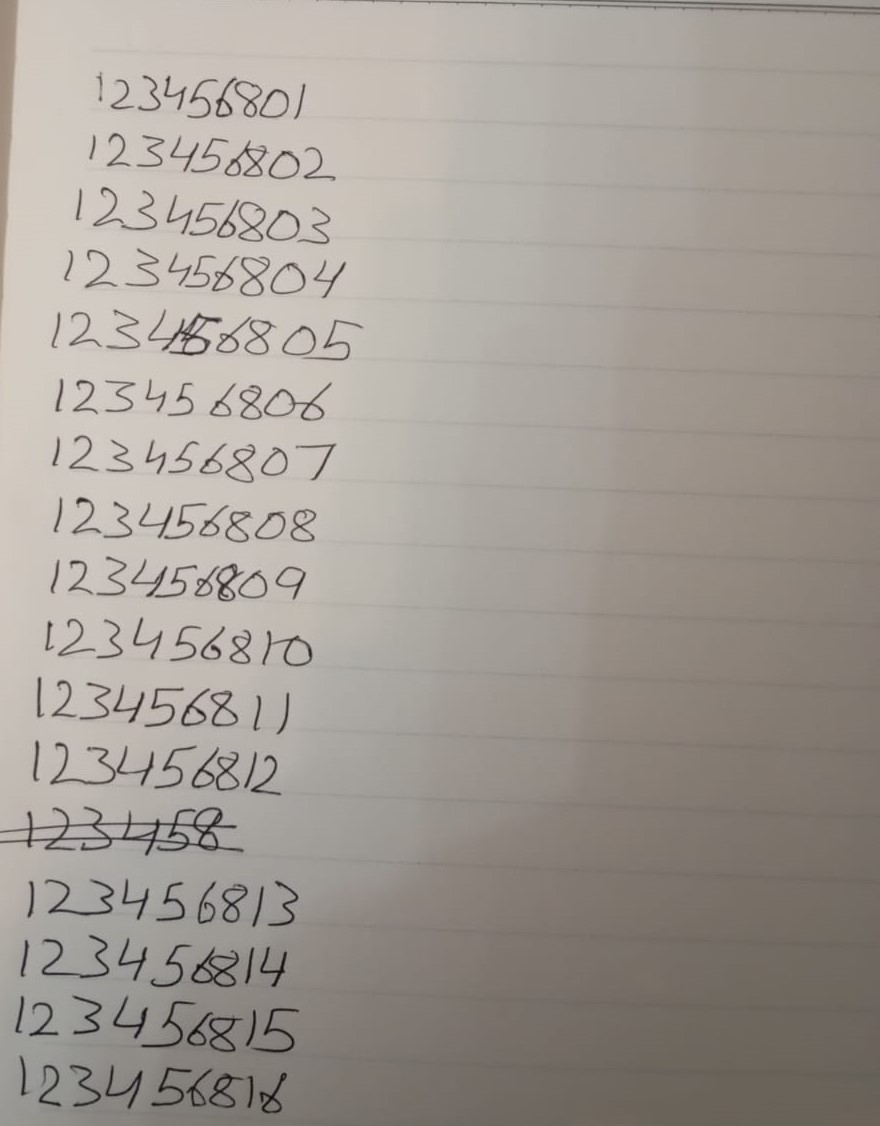 123456801
123456802
123456803
123456804
123456805
123456806
123456807
123456808
123456809
123456810
123456811
123456812
123458
123456813
123456814
123456815
123456816